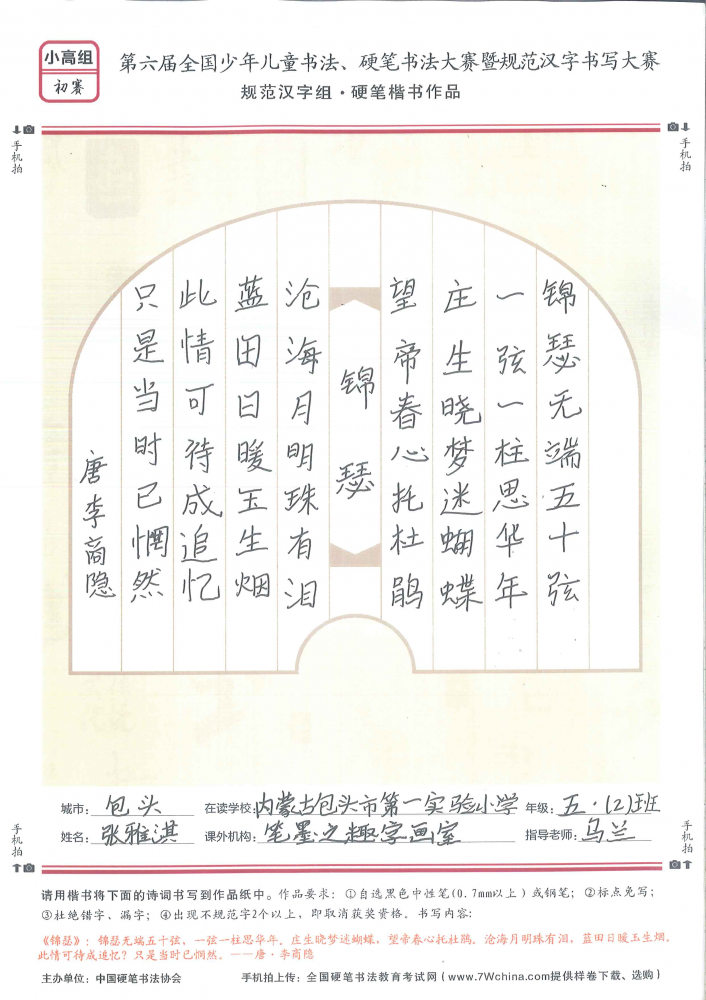 小高组
初赛
第六届全国少年儿童书法、硬笔书法大赛暨规范汉字书写大赛
规范汉字组·硬笔楷书作品
手机拍
手机拍
锦瑟无端五十弦
一弦一柱思华年
庄生晓梦迷蝴蝶
望帝春心托杜鹃
锦瑟
沧海月明珠有泪
蓝田日暖玉生烟
此情可待成追忆
只是当时已惘然
唐李商隐
城市：包头 在读学校：内蒙古包头市第一实验小学 年级：五·(2)班
姓名：张雅淇 课外机构：笔墨之趣字画室 指导老师：马兰
手机拍
手机拍
请用楷书将下面的诗词书写到作品纸中。作品要求：①自选黑色中性笔(0.7mm以上）或钢笔；②标点免写；
③杜绝错字、漏字；④出现不规范字2个以上，即取消获奖资格。书写内容：
《锦瑟》：锦瑟无端五十弦，一弦一柱思华年。庄生晓梦迷蝴蝶，望帝春心托杜鹃。沧海月明珠有泪，蓝田日暖玉生烟。
此情可待成追忆？只是当时已惘然。——唐·李商隐
主办单位：中国硬笔书法协会 手机拍上传：全国硬笔书法教育考试网（www.7Wchina.com提供样卷下载、选购）